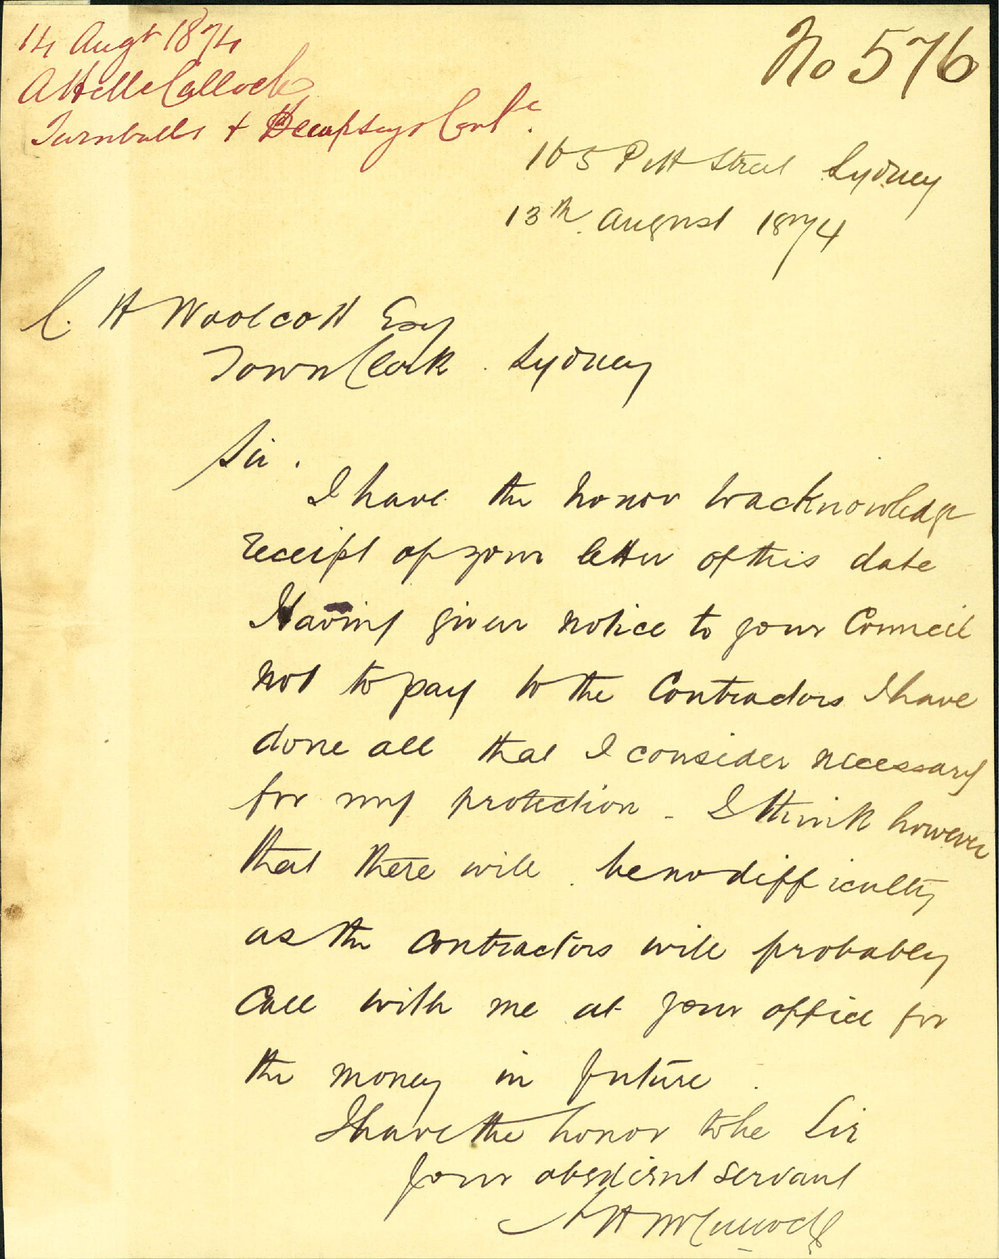 14 Augt 1874
A H McCullock
Turnbulls & Dempseys Cont.
No 576
165 Pitt Street Sydney
13th August 1874
C. H Woolcott Esq
Town Clerk. Sydney
Sir.
I have the honor to acknowledge
receipt of your letter of this date
Having given notice to your Council
not to pay to the Contractors I have
done all that I consider necessary
for my protection - I think however
that there will be no difficulty
as the contractors will probably
call with me at your office for
the money in future.
I have the honor to be Sir
Your obedient servant
A H McCulloch